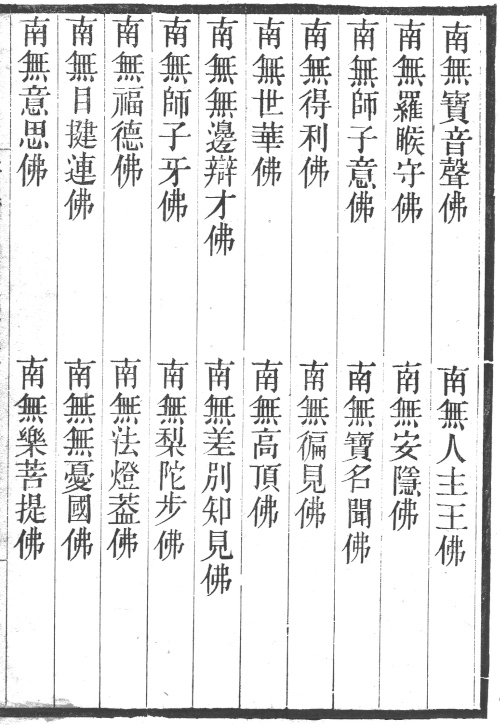 南無寶音聲佛　南無人主王佛
南無羅睺守佛　南無安隱佛
南無師子意佛　南無寶名聞佛
南無得利佛　南無徧見佛
南無世華佛　南無高頂佛
南無無邊辯才佛　南無差別知見佛
南無師子牙佛　南無梨陀步佛
南無福德佛　南無法燈葢佛
南無目揵連佛　南無無憂國佛
南無意思佛　南無樂菩提佛